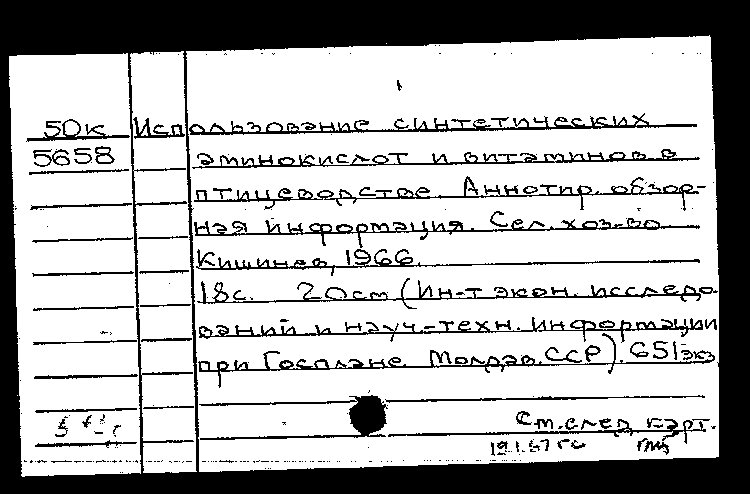 50к Использование синтетических
5658 аминокислот и витаминов в
птицеводстве. Аннотир. обзор-
ная информация. Сел. хоз-во
Кишинев, 1966.
18с. 20см (Ин-т экон. исследо
ваний и науч-техн. информации
при Госплане. Молдав. ССР). 651экз
См. след. карт.
19.1.67